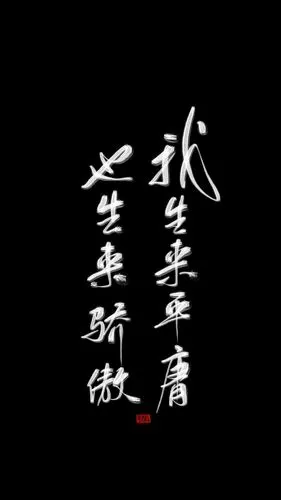 我生来平庸
也生来骄傲